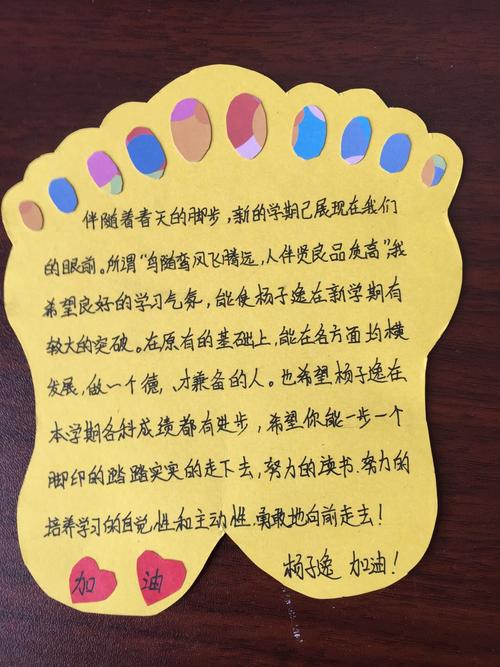 伴随着春天的脚步，新的学期已展现在我们
的眼前。所谓“鸟随鸾凤飞腾远，人伴贤良品质高”我
希望良好的学习气氛，能使杨子逸在新学期有
较大的突破。在原有的基础上，能在各方面均横
发展，做一个德、才兼备的人。也希望杨子逸在
本学期各科成绩都有进步，希望你能一步一个
脚印的踏踏实实的走下去，努力的读书.努力的
培养学习的自觉性和主动性.勇敢地向前走去！
杨子逸 加油！
加 油